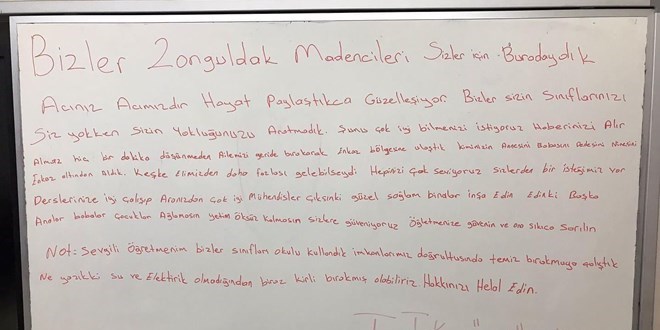 Bizler Zonguldak Madencileri Sizler için Buradaydık
Acınız Acımızdır Hayat Paylaştıkca Güzelleşiyor Bizler sizin Sınıflarınızı
Siz yokken Sizin Yokluğunuzu Aratmadık. Şunu çok iyi bilmenizi istiyoruz Haberinizi Alır
Almaz hiç bir dakika düşünmeden Ailemizi geride bırakarak Enkaz bölgesine ulaştık kiminizin Annesini Babasını Dedesini Ninesini
Enkaz altından aldık. Keşke Elimizden daha fazlası gelebilseydi Hepinizi Çok seviyoruz sizlerden bir isteğimiz var
Derslerinize iyi çalışıp Aranızdan çok iyi Mühendisler Çıksınki güzel sağlam binalar inşa Edin Edinki Başka
Analar babalar çocuklar Ağlamasın yetim öksüz kalmasın sizlere güveniyoruz Öğretmenize güvenin ve ona sıkıca Sarılın
Not: Sevgili Öğretmenim bizler sınıfları okulu kullandık imkanlarımız doğrultusunda temiz bırakmaya çalıştık
Ne yazıkki su ve Elektirik olmadığından biraz kirli bırakmış olabiliriz Hakkınızı Helal Edin.